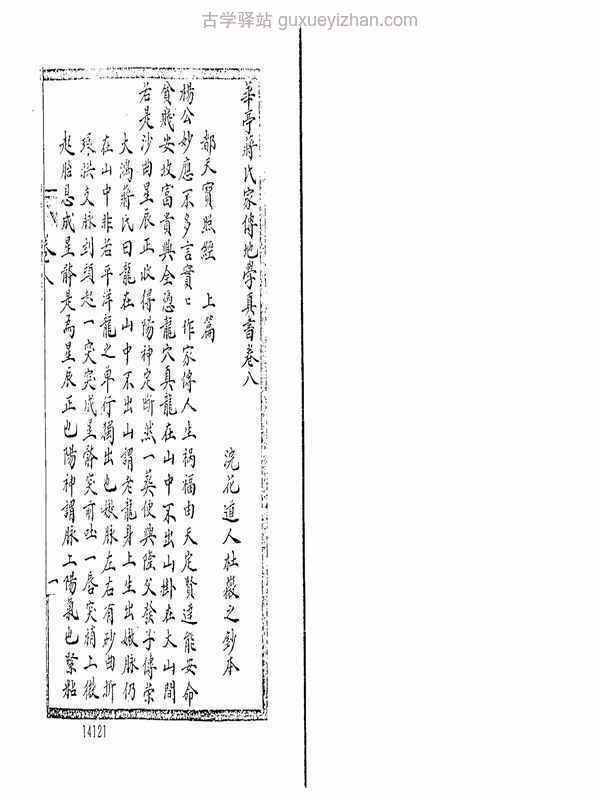 古学驿站 guxueyizhan.com
華亭蔣氏家傳地學真書卷八
浣花道人杜嚴之鈔本
都天寶照經 上篇
楊公妙應不多言實〻作家傳人生禍福由天定賢達能安命
貧賤安坟富貴興全憑龍穴真龍在山中不出山掛在大山間
若是沙曲星辰正收得陽神定斷然一葬便興隆父發子傳榮
大鴻蔣氏曰龍在山中不出山謂老龍身上生出嫩脉仍
在山中非若平洋龍之單行獨出也嫩脉左右有砂曲折
環拱文脉到頭起一突突成星體突前吐一唇突稍上微
起胎息成星體是爲星辰正也陽神謂脉上陽氣也緊貼
卷八
一
14121